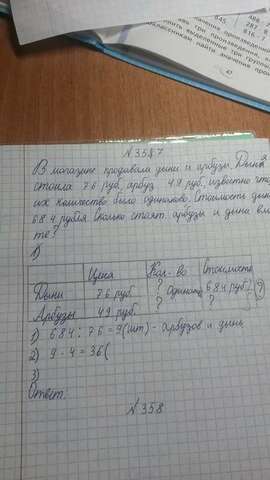 №3587
В магазине продавали дыни и арбузы. Дыня
стоила 76 руб, арбуз 49 руб, известно что
их количество было одинаково. Стоимость
684 рубля. Сколько стоят арбузы и дыни
те?
1)
Цена Кол-во Стоимость
Дыни 76 руб. ? одинак. 684 руб. ?
Арбузы 49 руб. ? ?
1) 684 : 76 = 9 (шт) - арбузов и дынь
2) 9 · 4 = 36 (
3)
Ответ:
№358